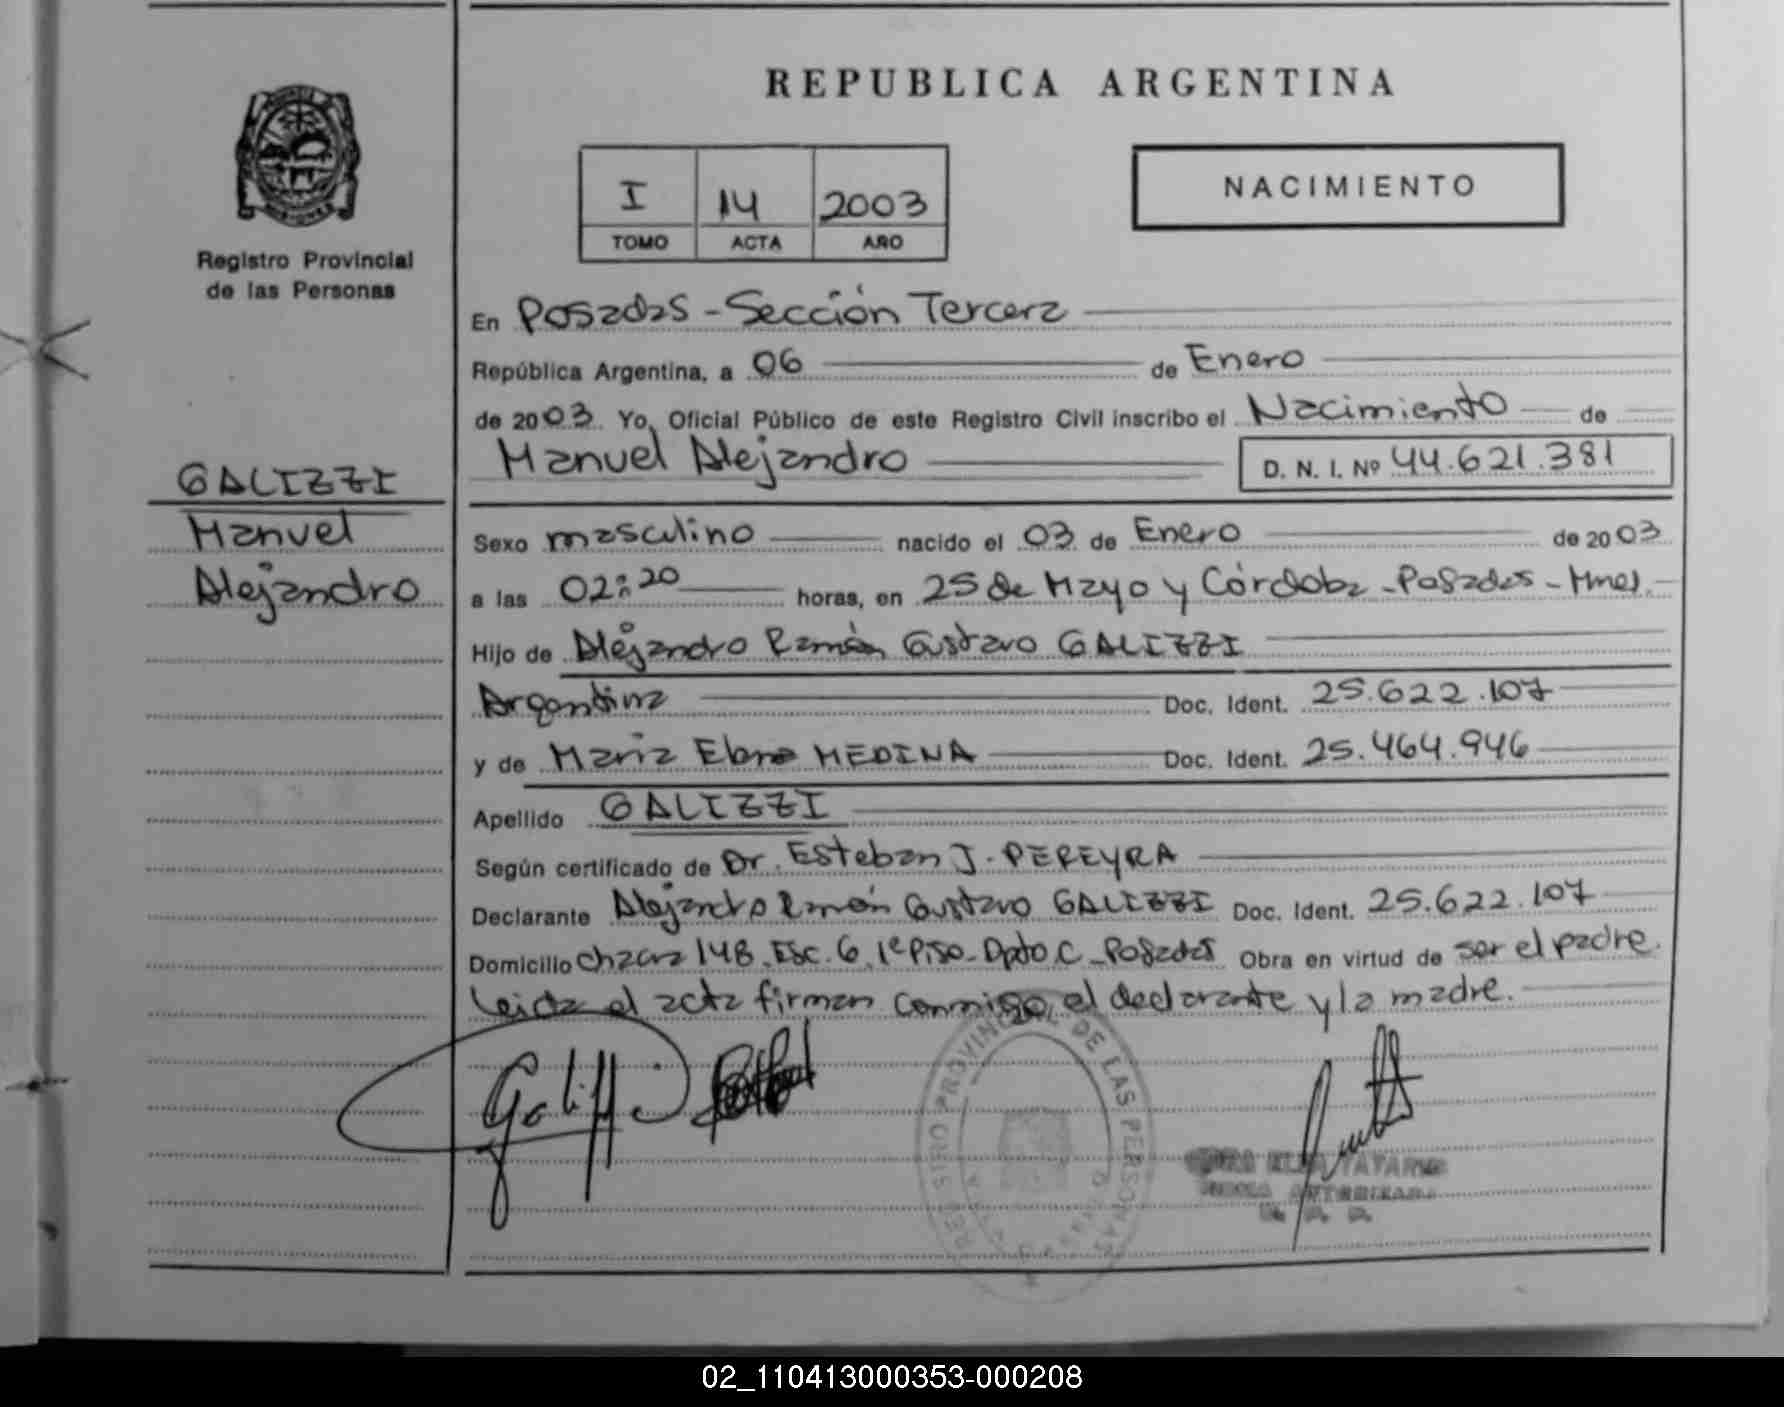 REPUBLICA ARGENTINA
NACIMIENTO
I 14 2003
TOMO ACTA AÑO
Registro Provincial
de las Personas
MISIONES
En Posadas - Sección Tercera
República Argentina, a 06 de Enero
de 2003. Yo, Oficial Público de este Registro Civil inscribo el Nacimiento de
Manuel Alejandro D. N. I. Nº 44.621.381
GALIZZI
Manuel
Alejandro
Sexo masculino nacido el 03 de Enero de 2003
a las 02:20 horas, en 25 de Mayo y Córdoba - Posadas - Mnes.
Hijo de Alejandro Ramón Gustavo GALIZZI
Argentina Doc. Ident. 25.622.107
y de Maria Elena MEDINA Doc. Ident. 25.464.946
Apellido GALIZZI
Según certificado de Dr. Esteban J. PEREYRA
Declarante Alejandro Ramón Gustavo GALIZZI Doc. Ident. 25.622.107
Domicilio Chacra 148, Esc. 6, 1º Piso - Dpto. C - Posadas Obra en virtud de ser el padre.
Leida el acta firman conmigo, el declarante y la madre.
Galizzi
REGISTRO PROVINCIAL DE LAS PERSONAS
POSADAS
TAVAREZ
FIRMA AUTORIZADA
02_110413000353-000208